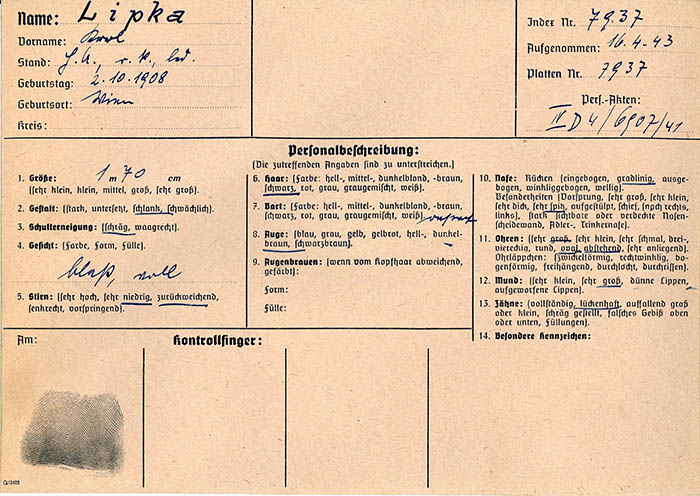 Name: Lipka
Vorname: Karl
Stand: led.
Geburtstag: 2.10.1908
Geburtsort: Wien
Kreis:
Index Nr. 7937
Aufgenommen: 16.4.43
Platten Nr. 7937
Pers.-Akten:
II D4/6907/41
Personalbeschreibung:
(Die zutreffenden Angaben sind zu unterstreichen.)
1. Größe: 1 m 70 cm
(sehr klein, klein, mittel, groß, sehr groß).
2. Gestalt: (stark, untersetzt, schlank, schwächlich).
3. Schulterneigung: (schräg, waagrecht).
4. Gesicht: (Farbe, Form, Fülle).
blaß, voll
5. Stirn: (sehr hoch, sehr niedrig, zurückweichend,
senkrecht, vorspringend).
6. Haar: (Farbe: hell-, mittel-, dunkelblond, -braun,
schwarz, rot, grau, graugemischt, weiß).
7. Bart: (Farbe: hell-, mittel-, dunkelblond, -braun,
schwarz, rot, grau, graugemischt, weiß).
8. Auge: (blau, grau, gelb, gelbrot, hell-, dunkel-
braun, schwarzbraun).
9. Augenbrauen: (wenn vom Kopfhaar abweichend,
gefärbt):
Form:
Fülle:
10. Nase: Rücken (eingebogen, gradlinig, ausge-
bogen, winkliggebogen, wellig).
Besonderheiten (Vorsprung, sehr groß, sehr klein,
sehr dick, sehr spitz, aufgestülpt, schief, (nach rechts,
links), stark sichtbare oder verdeckte Nasen-
scheidewand, Adler-, Trinkernase).
11. Ohren: (sehr groß, sehr klein, sehr schmal, drei-
viereckig, rund, oval, abstehend, sehr anliegend).
Ohrläppchen: (zwickelförmig, rechtwinklig, bo-
genförmig, freihängend, durchlocht, durchrissen).
12. Mund: (sehr klein, sehr groß, dünne Lippen,
aufgeworfene Lippen).
13. Zähne: (vollständig, lückenhaft, auffallend groß
oder klein, schräg gestellt, falsches Gebiß oben
oder unten, Füllungen).
14. Besondere Kennzeichen:
Am:
Kontrollfinger: